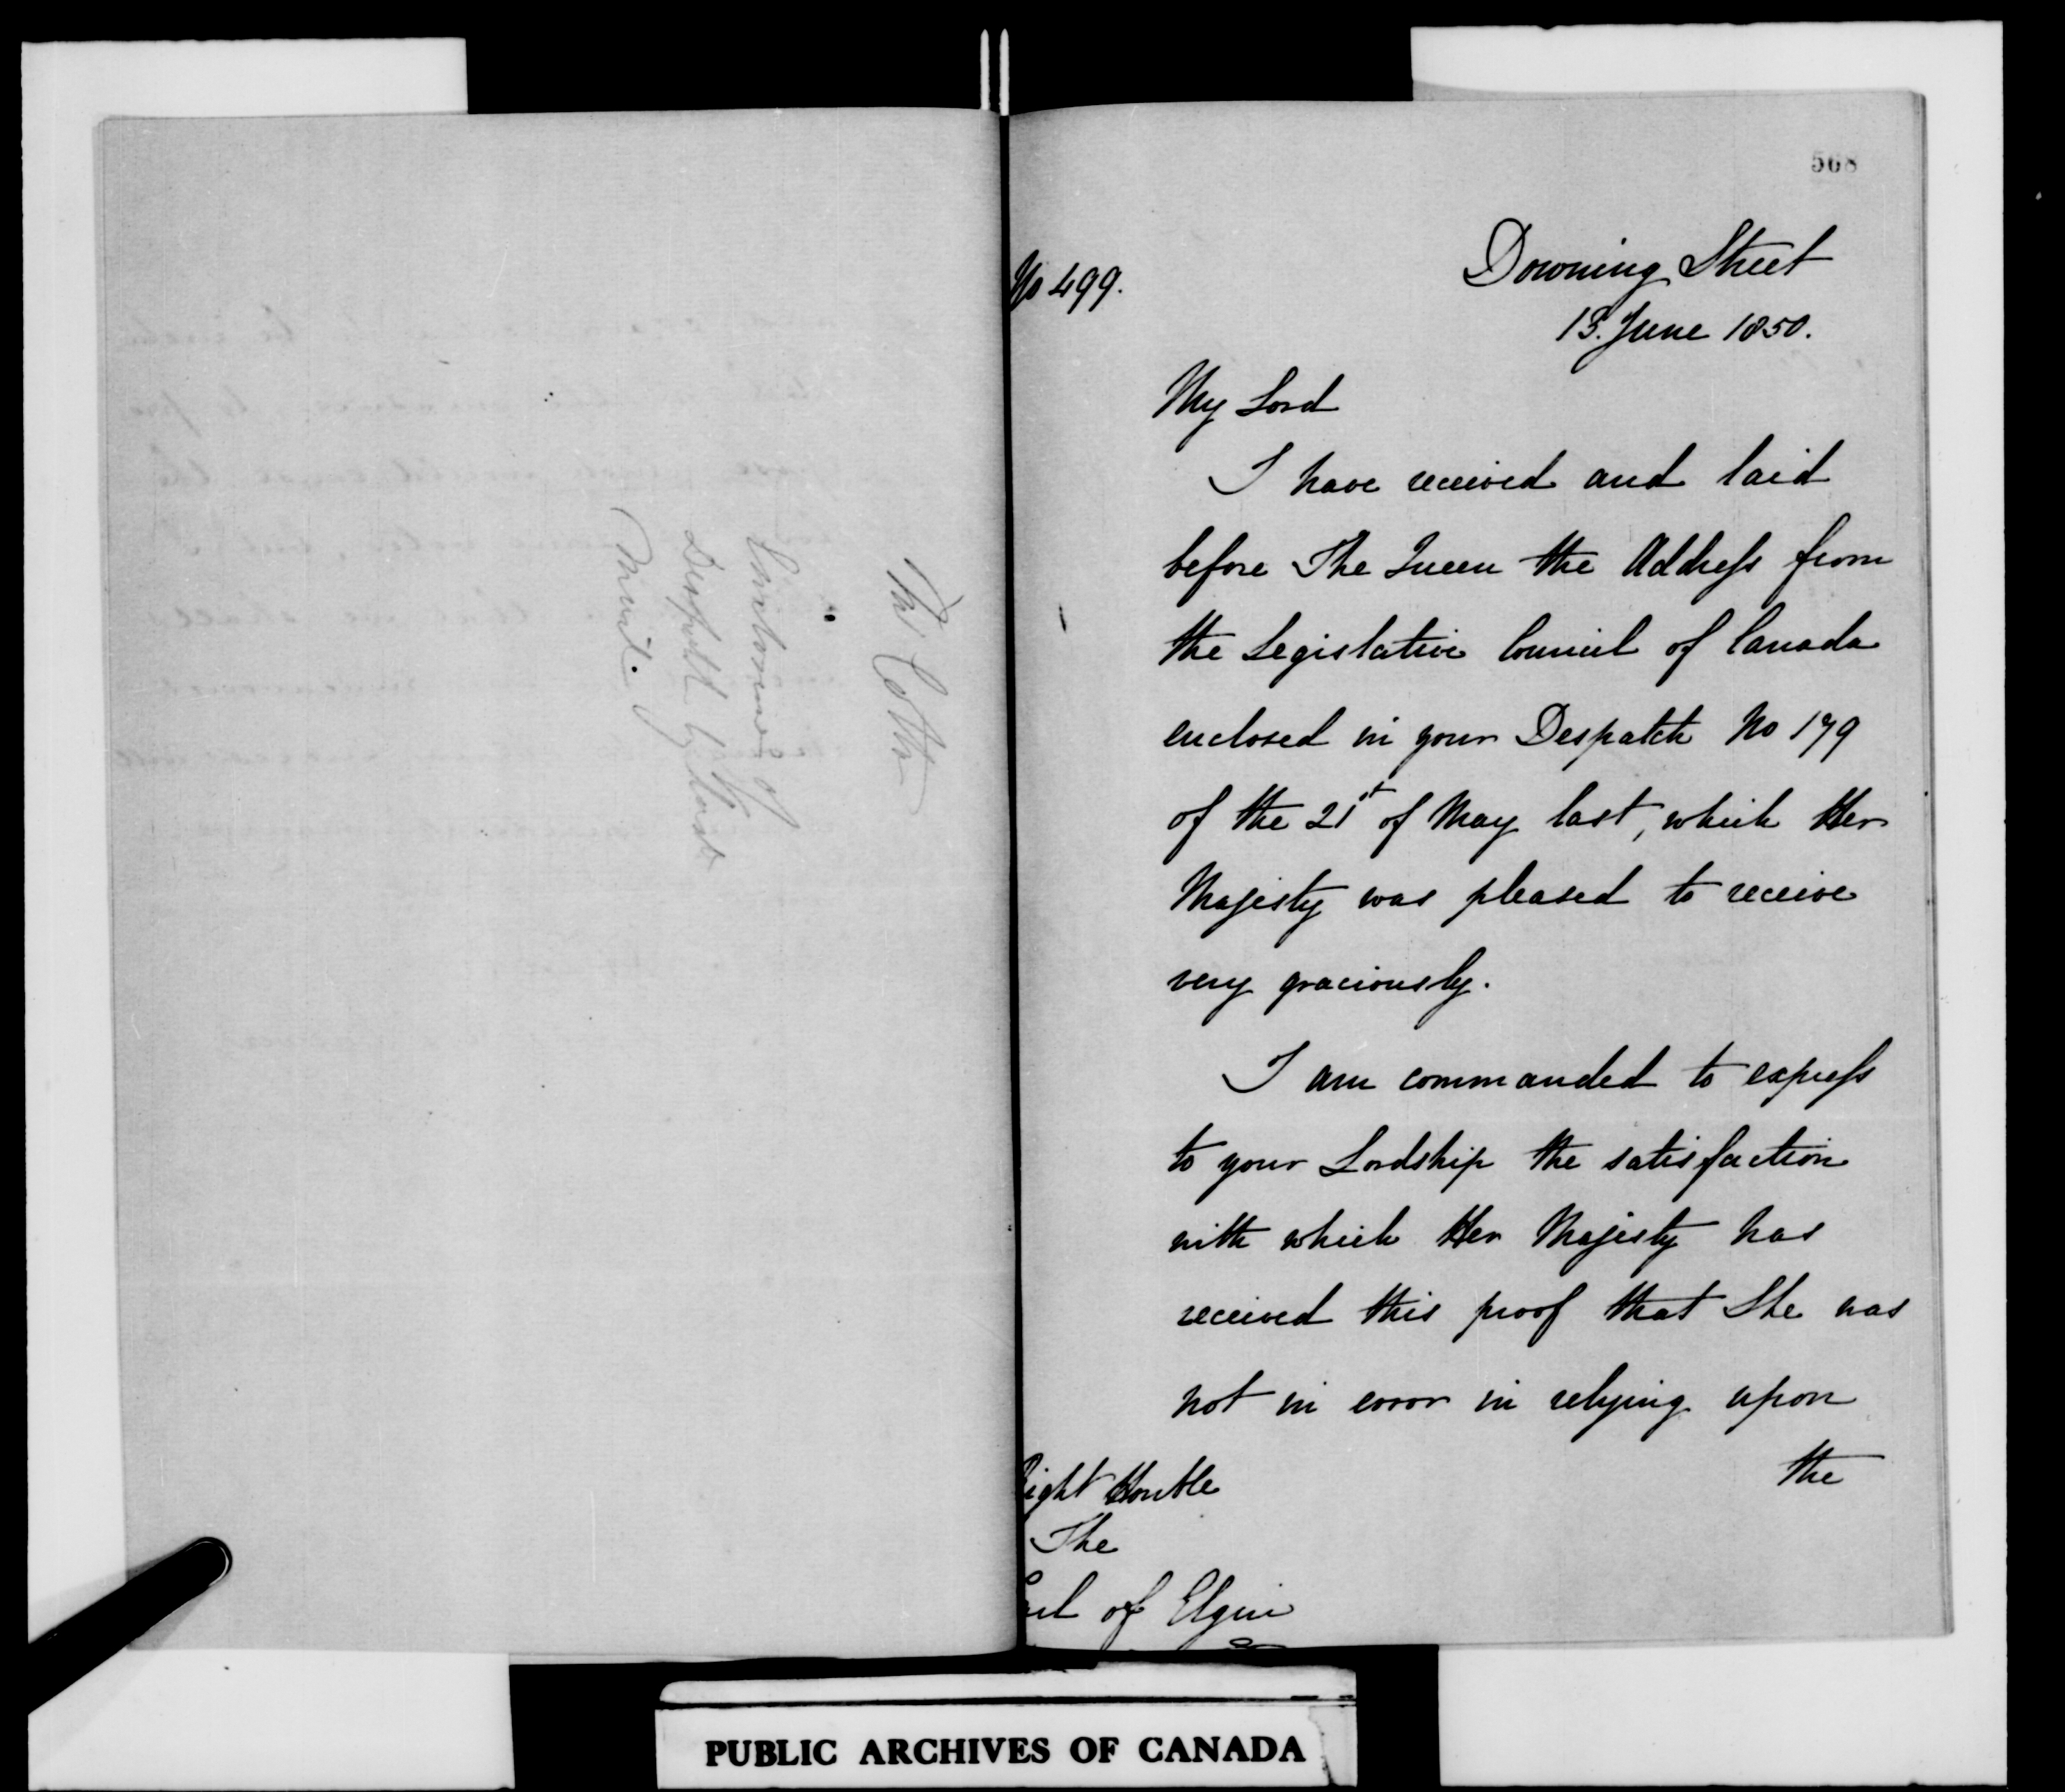 568
No 499.
Downing Street
13. June 1850.
My Lord
I have received and laid
before The Queen the Address from
the Legislative Council of Canada
enclosed in your Despatch No 179
of the 21st of May last, which Her
Majesty was pleased to receive
very graciously.
I am commanded to express
to your Lordship the satisfaction
with which Her Majesty has
received this proof that She was
not in error in relying upon
the
Right Honble
The
Earl of Elgin
PUBLIC ARCHIVES OF CANADA